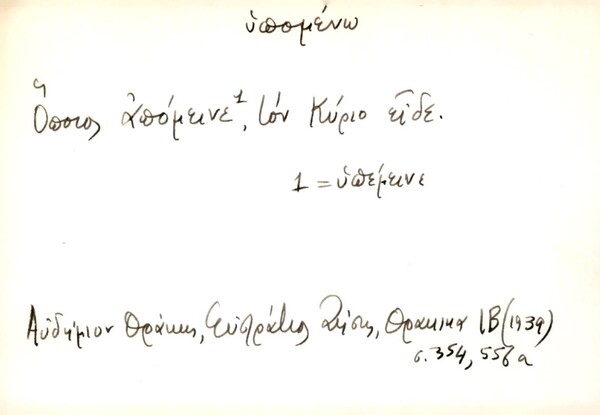 ὑπομένω
Ὅποιος ἀπόμεινε¹, τόν Κύριο εἶδε.
1 = ὑπέμεινε
Αὐδήμιον Θράκης, Εὐστράτιος Ζήσης, Θρακικά ΙΒ (1939)
σ. 354, 556α